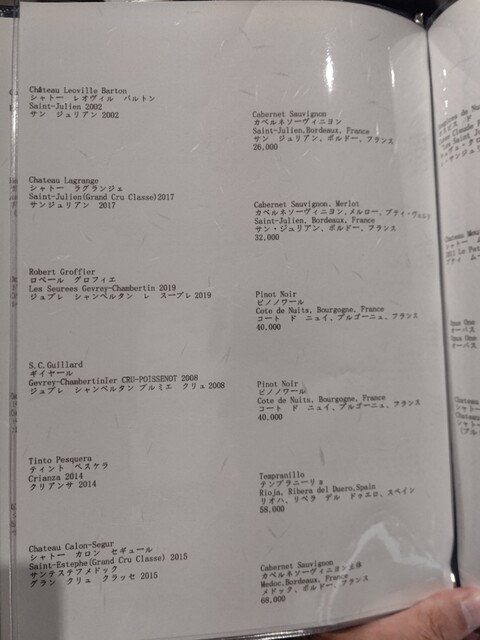 Château Leoville Barton
シャトー レオヴィル バルトン
Saint-Julien 2002
サン ジュリアン 2002
Cabernet Sauvignon
カベルネソーヴィニヨン
Saint-Julien,Bordeaux, France
サン ジュリアン、ボルドー、フランス
26,000
Chateau Lagrange
シャトー ラグランジェ
Saint-Julien(Grand Cru Classe)2017
サンジュリアン 2017
Cabernet Sauvignon, Merlot
カベルネソーヴィニヨン、メルロー、プティ・ヴェルド
Saint-Julien, Bordeaux, France
サン・ジュリアン、ボルドー、フランス
32,000
Robert Groffier
ロベール グロフィエ
Les Seurees Gevrey-Chambertin 2019
ジュブレ シャンベルタン レ スーブレ 2019
Pinot Noir
ピノノワール
Cote de Nuits, Bourgogne, France
コート ド ニュイ、ブルゴーニュ、フランス
40,000
S.C.Guillard
ギイヤール
Gevrey-Chambertin1er CRU-POISSENOT 2008
ジュブレ シャンベルタン プルミエ クリュ 2008
Pinot Noir
ピノノワール
Cote de Nuits, Bourgogne, France
コート ド ニュイ、ブルゴーニュ、フランス
40,000
Tinto Pesquera
ティント ペスケラ
Crianza 2014
クリアンサ 2014
Tempranillo
テンプラニーリョ
Rioja, Ribera del Duero,Spain
リオハ、リベラ デル ドゥエロ、スペイン
58,000
Chateau Calon-Segur
シャトー カロン セギュール
Saint-Estephe(Grand Cru Classe) 2015
サンテステフメドック
グラン クリュ クラッセ 2015
Cabernet Sauvignon
カベルネソーヴィニヨン主体
Medoc,Bordeaux, France
メドック、ボルドー、フランス
68,000
Opus One
オーパス
Opus One
オーパス